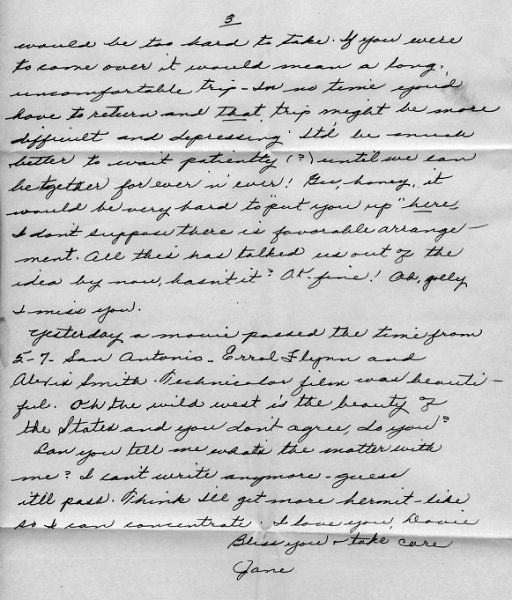 3
would be too hard to take. If you were
to come over it would mean a long,
uncomfortable trip - In no time you'd
have to return and that trip might be more
difficult and depressing. It'd be much
better to wait patiently (?) until we can
be together for ever 'n ever! Gee, honey, it
would be very hard to "put you up" here,
I don't suppose there is favorable arrange-
ment. All this has talked us out of the
idea by now, hasn't it? OK - fine! Oh, golly
I miss you.
Yesterday a movie passed the time from
5-7 - San Antonio - Errol Flynn and
Alexis Smith. Technicolor film was beauti-
ful. Oh the wild west is the beauty of
the States and you don't agree, do you?
Can you tell me what's the matter with
me? I can't write anymore - guess
it'll pass. Think I'll get more hermit-like
so I can concentrate. I love you, Davie
Bless you & take care
Jane